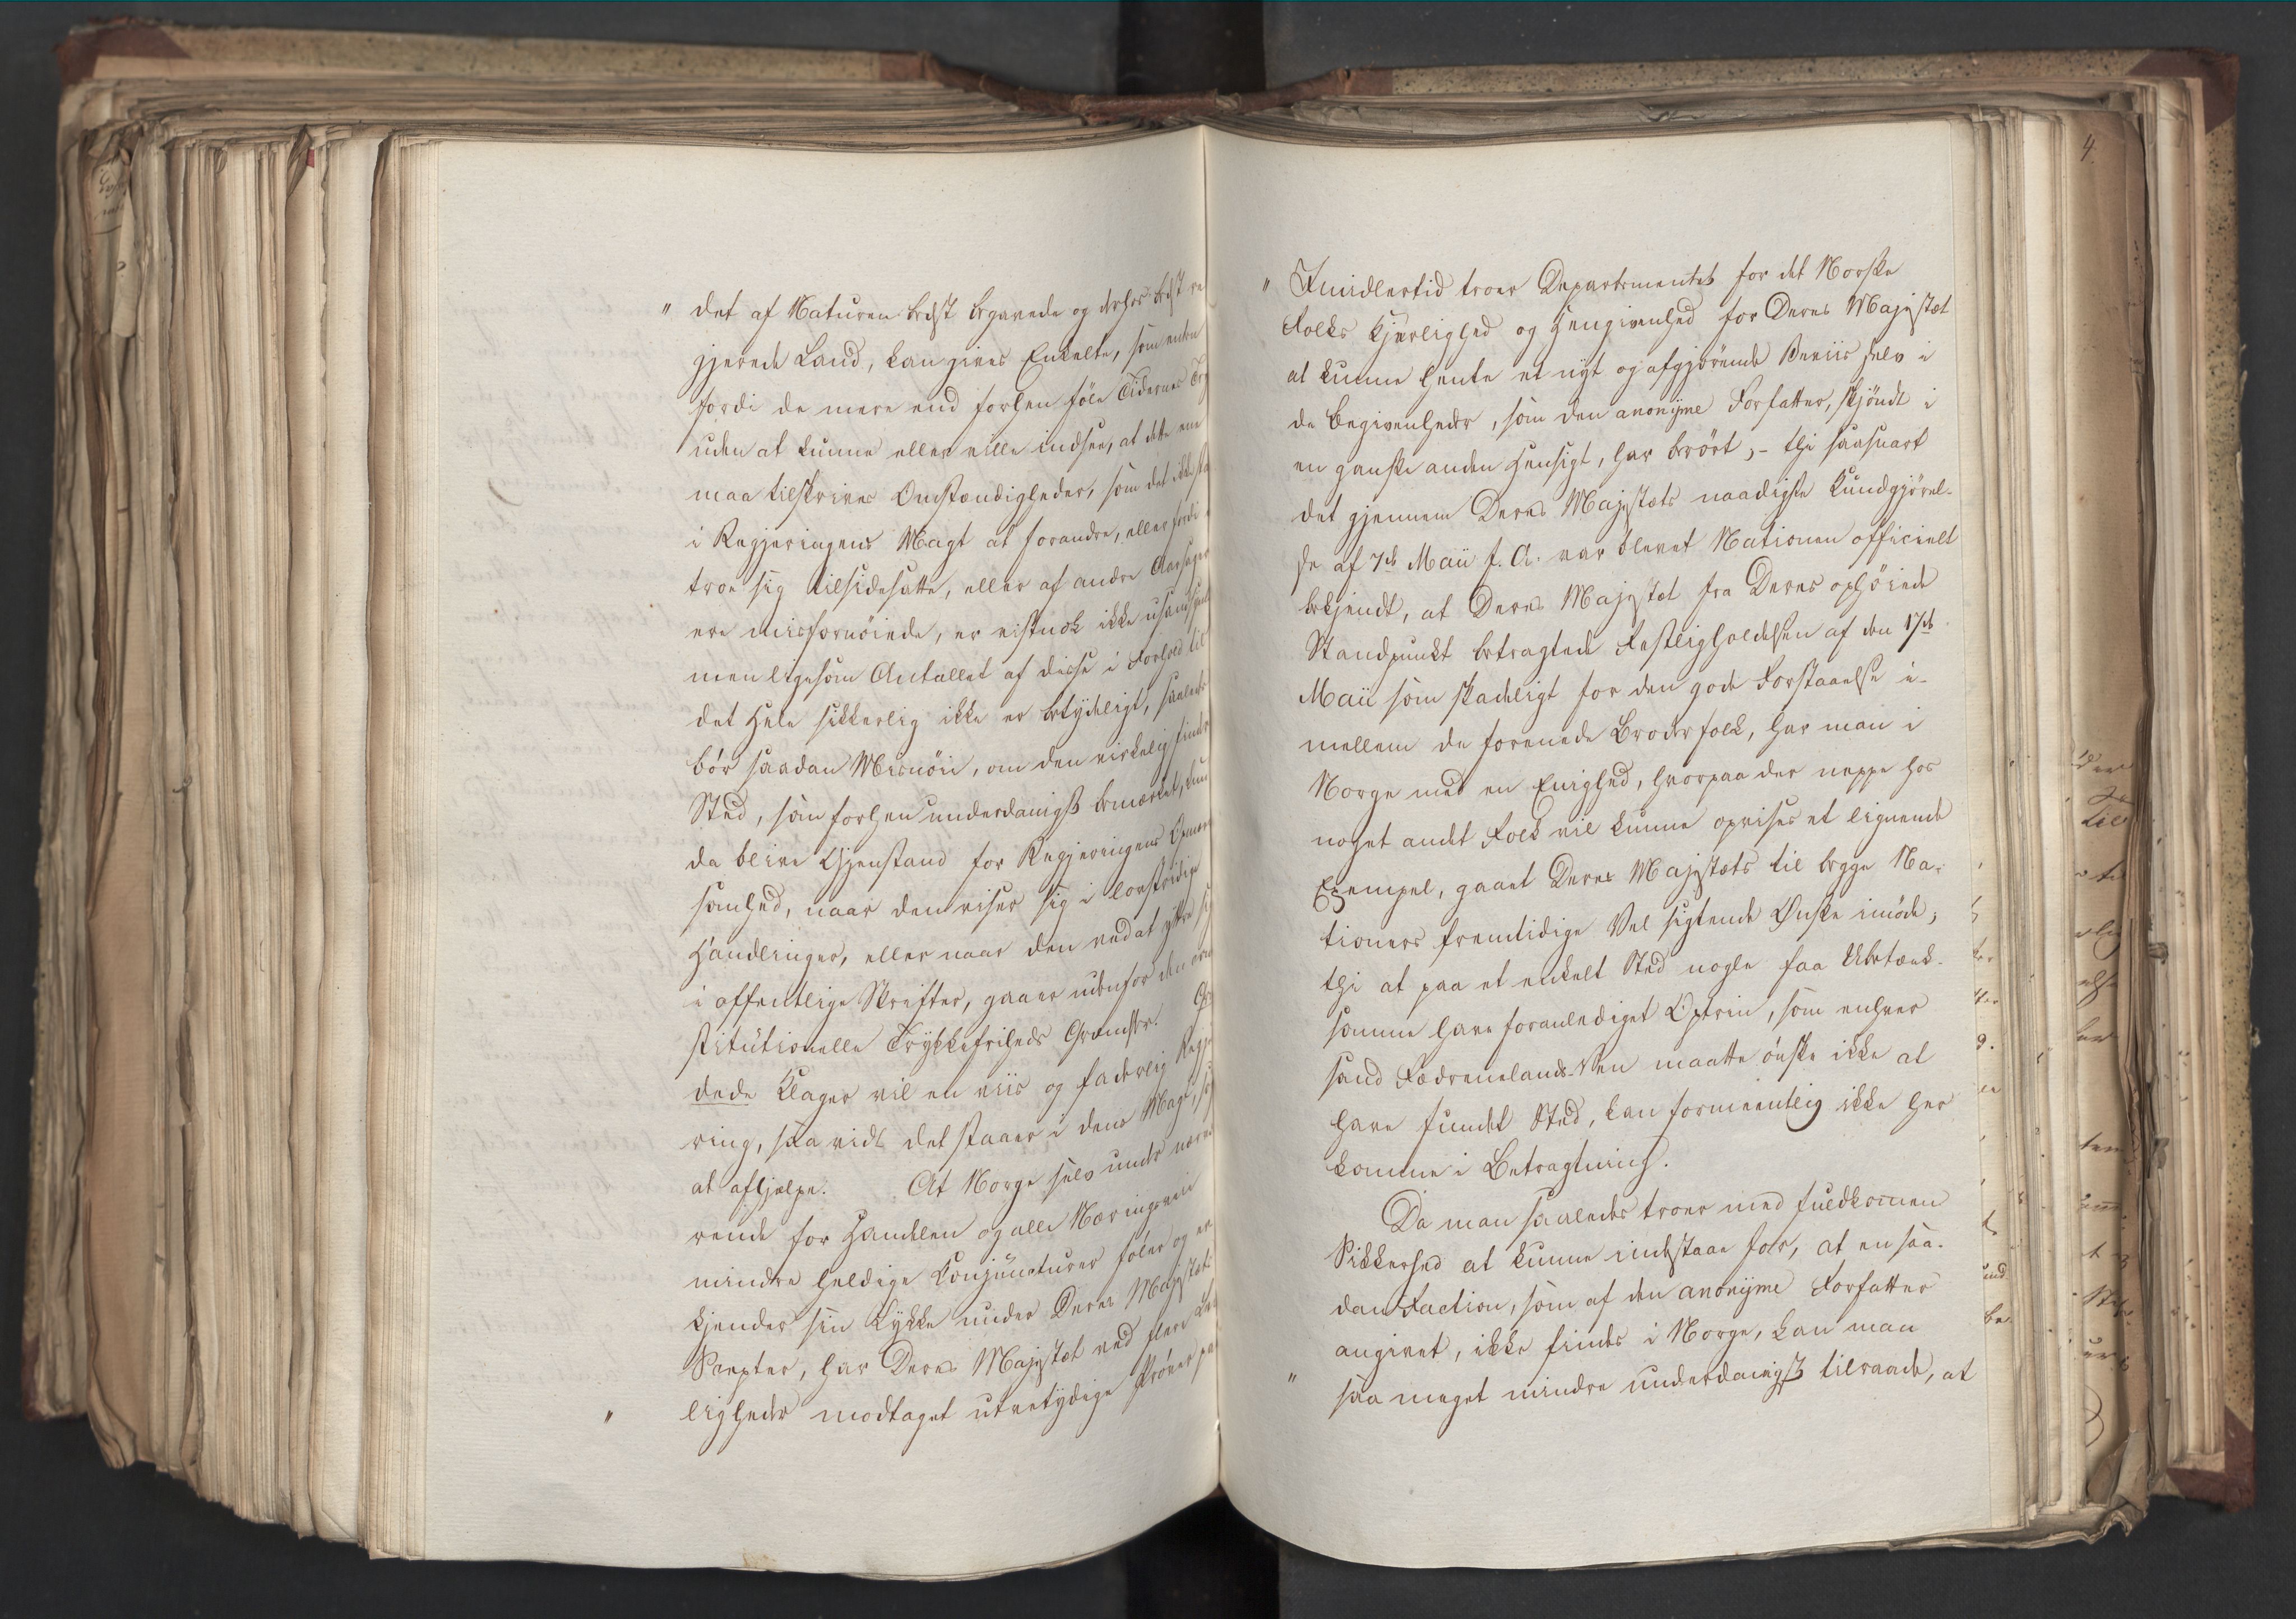 " det af Naturen bedst begavede og derhos bedst re
gjerede Land, kan gives Enkelte, som enten
fordi de mere end forhen föle Tidernes
uden at kunne eller ville indsee, at dette ene
maa tilskrives Omstændigheder, som det ikke sta
i Regjeringens Magt at forandre, eller fordi
troe sig tilsidesatte, eller af andre Aarsager
ere misfornöiede, er vistnok ikke usandsynl
men ligesom Antallet af disse i Forhold til
det Hele sikkerlig ikke er betydeligt, saaledes
bör saadan Misnöie, om den virkelig finder
Sted, som forhen underdanigst bemærket, kun
da blive Gjenstand for Regjeringens Opmærk
somhed, naar den viser sig i lovstridige
Handlinger, eller naar den ved at yttre sig
i offentlige Skrifter, gaaer udenfor den con
stitutionelle Trykkefriheds Grændser. Gr
dede Klager vil en viis og faderlig Regje
ring, saavidt det staaer i dens Magt, sög
at afhjelpe. At Norge selv under nærvæ
rende for Handelen og alle Næringsveie
mindre heldige Conjuncturer föler og er
kjender sin Lykke under Deres Majestæts
Scepter, har Deres Majestæt ved flere Lei
" ligheder modtaget utvetydige Pröver paa
" Imidlertid troer Departementet for det Norske
Folks Kjerlighed og Hengivenhed for Deres Majestæt
at kunne hente et nyt og afgjörende Beviis selv i
de Begivenheder, som den anonyme Forfatter, skjöndt i
en ganske anden Hensigt, har berört; - thi saasnart
det gjennem Deres Majestæts naadigste Kundgjörel-
se af 7de Maii f. A. var blevet Nationen officielt
bekjendt, at Deres Majestæt fra Deres ophöiede
Standpunkt betragtede Festligholdelsen af den 17de
Maii som skadeligt for den gode Forstaaelse i-
mellem de forenede Broderfolk, har man i
Norge med en Enighed, hvorpaa der neppe hos
noget andet Folk vil kunne opvises et lignende
Exempel, gaaet Deres Majestæts til begge Na-
tioners fremtidige Vel sigtende Ønske imöde;
thi at paa et enkelt Sted nogle faa Ubetænk-
somme have foranlediget Optrin, som enhver
sand Fædrenelands-Ven maatte önske ikke at
have fundet Sted, kan formeentlig ikke her
komme i Betragtning.
Da man saaledes troer med fuldkommen
Sikkerhed at kunne indestaae for, at en saa-
dan Faction, som af den anonyme Forfatter
angivet, ikke findes i Norge, kan man
" saa meget mindre underdanigst tilraade, at
4.